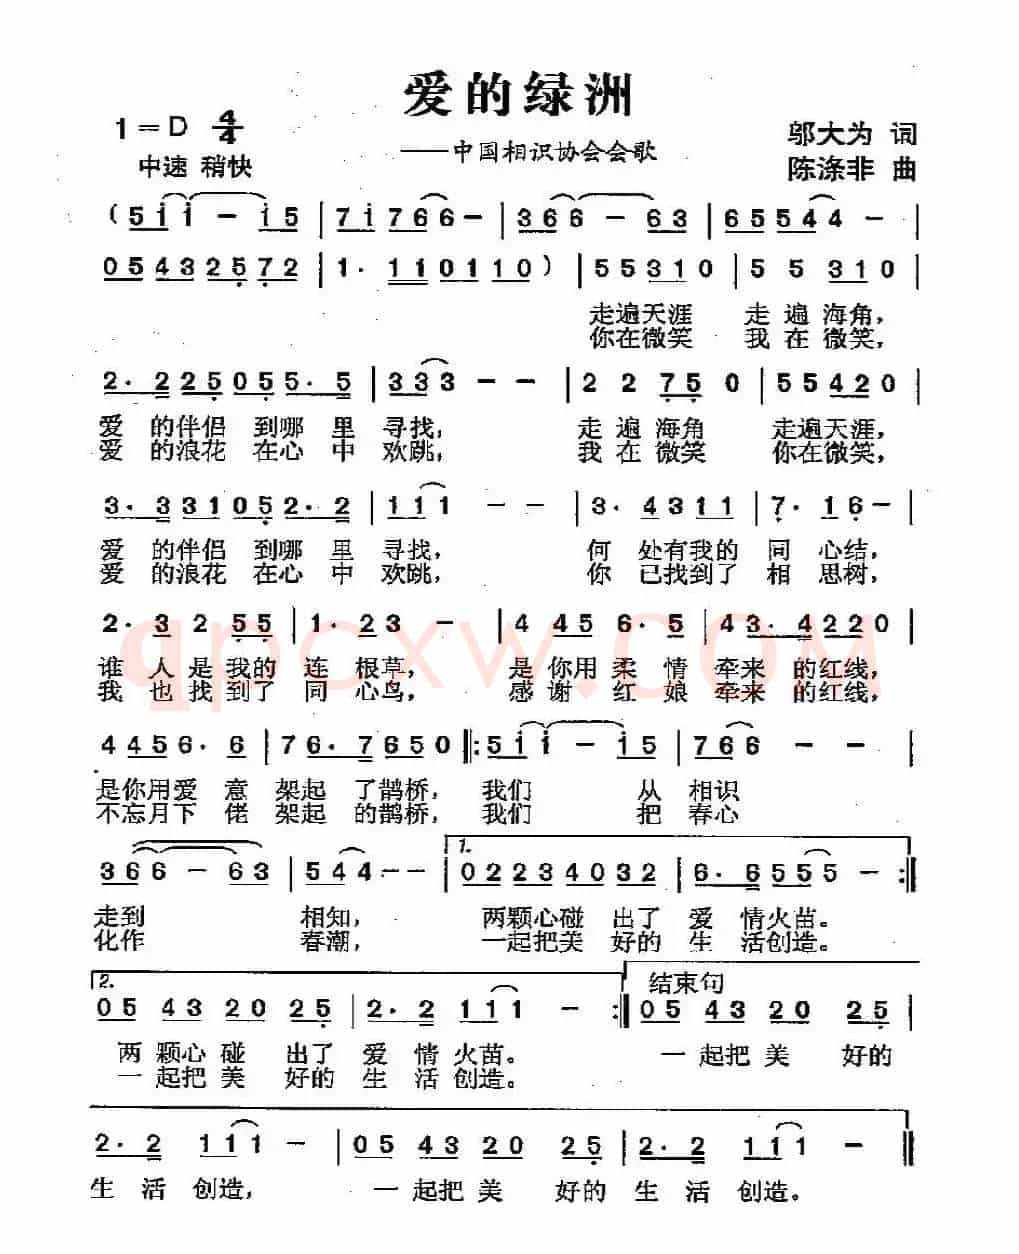 爱的绿洲
1=D 4/4
——中国相识协会会歌
邬大为 词
中速 稍快
陈涤非 曲
(5 i i - i 5 | 7 i 7 6 6 - | 3 6 6 - 6 3 | 6 5 5 4 4 - |
0 5 4 3 2 5 7 2 | 1· 1 1 0 1 1 0 ) | 5 5 3 1 0 | 5 5 3 1 0 |
走遍天涯 走遍海角，
你在微笑 我在微笑，
2· 2 2 2 5 0 5 5· 5 | 3 3 3 - - | 2 2 7 5 0 | 5 5 4 2 0 |
爱 的伴侣 到哪 里 寻找， 走 遍 海角 走遍天涯，
爱 的浪花 在心 中 欢跳， 我 在 微笑 你在微笑，
3· 3 3 3 1 0 5 2· 2 | 1 1 1 - | 3· 4 3 1 1 | 7· 1 6 - |
爱 的伴侣 到哪 里 寻找， 何 处有我的 同 心结，
爱 的浪花 在心 中 欢跳， 你 已找到了 相 思树，
2· 3 2 5 5 | 1· 2 3 - | 4 4 5 6· 5 | 4 3· 4 2 2 0 |
谁 人 是 我的 连 根草， 是 你用 柔 情 牵来 的红线，
我 也 找 到了 同 心鸟， 感 谢 红 娘 牵来 的红线，
4 4 5 6· 6 | 7 6· 7 6 5 0 |: 5 i i - i 5 | 7 6 6 - - |
是你用爱 意 架起 了鹊桥， 我们 从 相识
不忘月下 佬 架起 的鹊桥， 我们 把 春心
1.
3 6 6 - 6 3 | 5 4 4 - - | 0 2 2 3 4 0 3 2 | 6· 6 5 5 5 - :|
走到 相知， 两颗心碰 出了 爱 情火苗。
化作 春潮， 一起把美 好的 生 活创造。
2. 结束句
0 5 4 3 2 0 2 5 | 2· 2 1 1 1 - :| 0 5 4 3 2 0 2 5 |
两 颗心 碰 出了 爱 情 火苗。 一 起把 美 好的
一 起把 美 好的 生 活 创造。
2· 2 1 1 1 - | 0 5 4 3 2 0 2 5 | 2· 2 1 1 1 - ||
生 活 创造， 一 起把 美 好的 生 活 创造。
qpcxw.COM